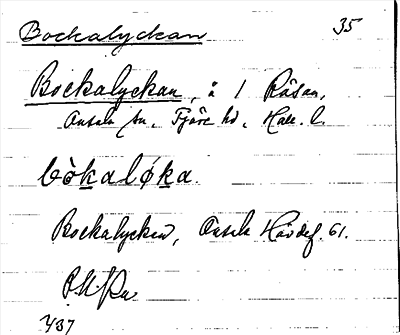 Bockalyckan 35
Bockalyckan, å 1 Råsan,
Onsala sn, Fjäre hd, Hall. l.
bòkaløka.
Bockalyckan, Onsala Hävdef. 61.
1437